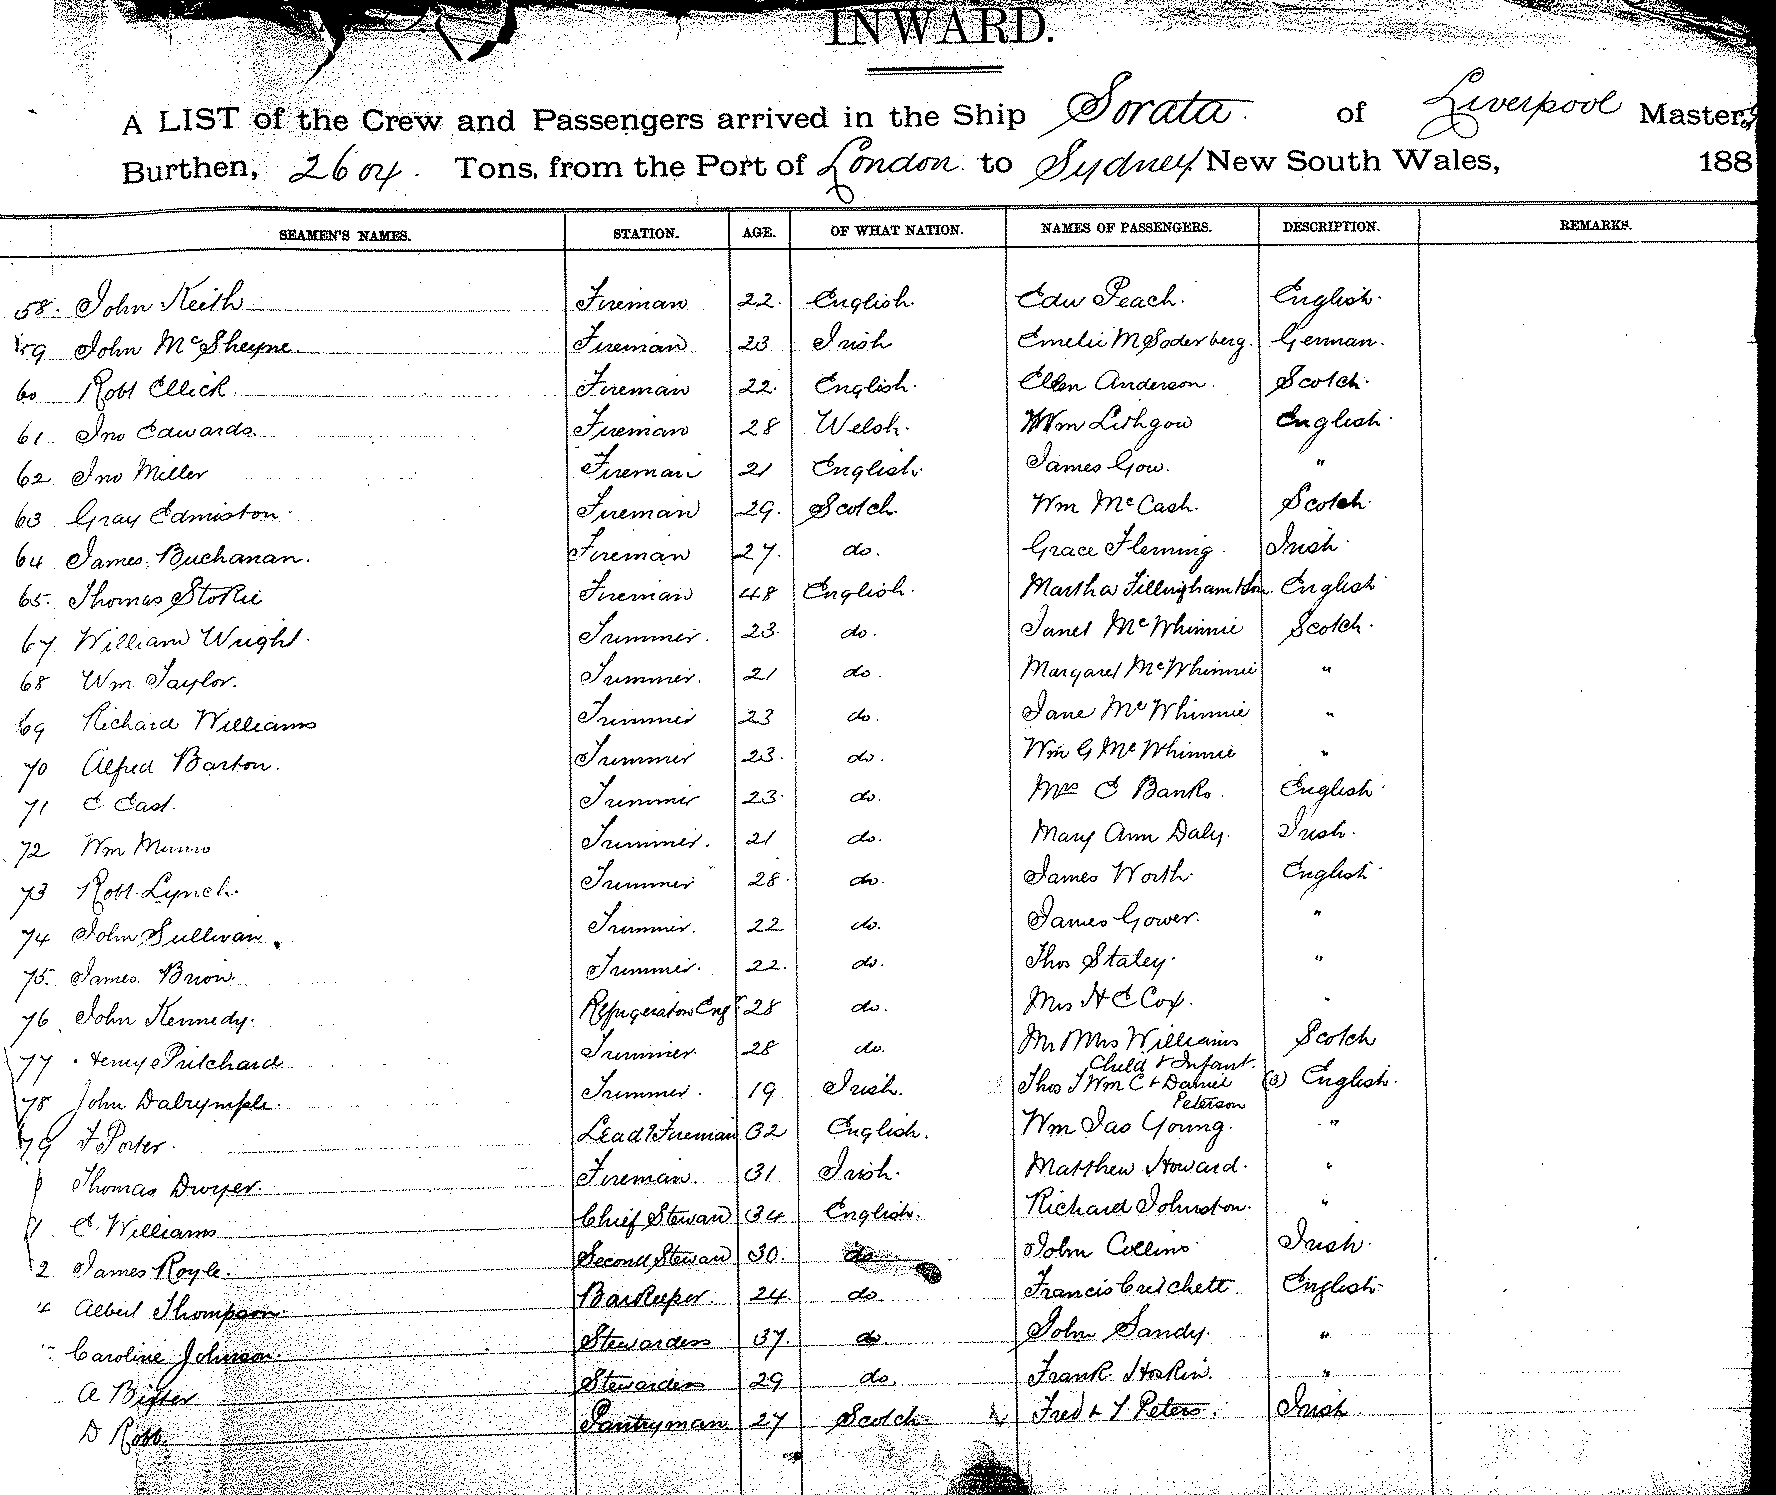 INWARD.
A LIST of the Crew and Passengers arrived in the Ship Sorata of Liverpool Master,
Burthen, 2604. Tons, from the Port of London to Sydney New South Wales, 188
SEAMEN'S NAMES. STATION. AGE. OF WHAT NATION. NAMES OF PASSENGERS. DESCRIPTION. REMARKS.
58. John Keith Fireman 22. English. Edw Peach. English.
59 John McSheyne Fireman 23 Irish Emelie M Soderberg. German.
60 Robt Ellick Fireman 22. English. Ellen Anderson. Scotch.
61. Jno Edwards Fireman 28 Welsh. Wm Lithgow English.
62. Jno Miller Fireman 21 English. James Gow. "
63 Gray Edmiston Fireman 29. Scotch. Wm McCash. Scotch.
64 James Buchanan. Fireman 27. do. Grace Fleming. Irish.
65. Thomas Stokie Fireman 48 English. Martha Tillingham English
67. William Wright. Trimmer. 23. do. Janet McWhinnie Scotch.
68 Wm Taylor. Trimmer. 21 do. Margaret McWhinnie "
69 Richard Williams Trimmer 23 do. Jane McWhinnie "
70 Alfred Barton. Trimmer 23. do. Wm G McWhinnie "
71 E East. Trimmer 23. do. Mrs E Banks. English.
72 Wm Munro Trimmer. 21 do. Mary Ann Daly. Irish.
73 Robt Lynch Trimmer 28. do. James Worth. English.
74 John Sullivan. Trimmer. 22 do. James Gower. "
75. James Brion. Trimmer. 22. do. Thos Staley. "
76 John Kennedy. Refrigerator Engr 28 do. Mrs H E Cox. "
77 Henry Pritchard Trimmer 28 do. Mr Mrs Williams Scotch
Child & Infant.
78 John Dalrymple. Trimmer. 19 Irish. Thos J Wm C & Daniel (3) English.
Peterson
79 F Porter. Leadg Fireman 32 English. Wm Jas Young. "
Thomas Dwyer. Fireman. 31 Irish. Matthew Howard. "
1. E. Williams Chief Stewar 34 English. Richard Johnston. "
2 James Royle. Second Stewar 30. do John Collins Irish.
4 Albert Thompson Barkeeper. 24 do. Francis Critchett. English.
Caroline Johnson. Stewardess 37. do. John Sandy. "
A Bister Stewardess 29 do. Frank Hoskin. "
D Robb. Pantryman 27 Scotch. Fred & Y Peters. Irish